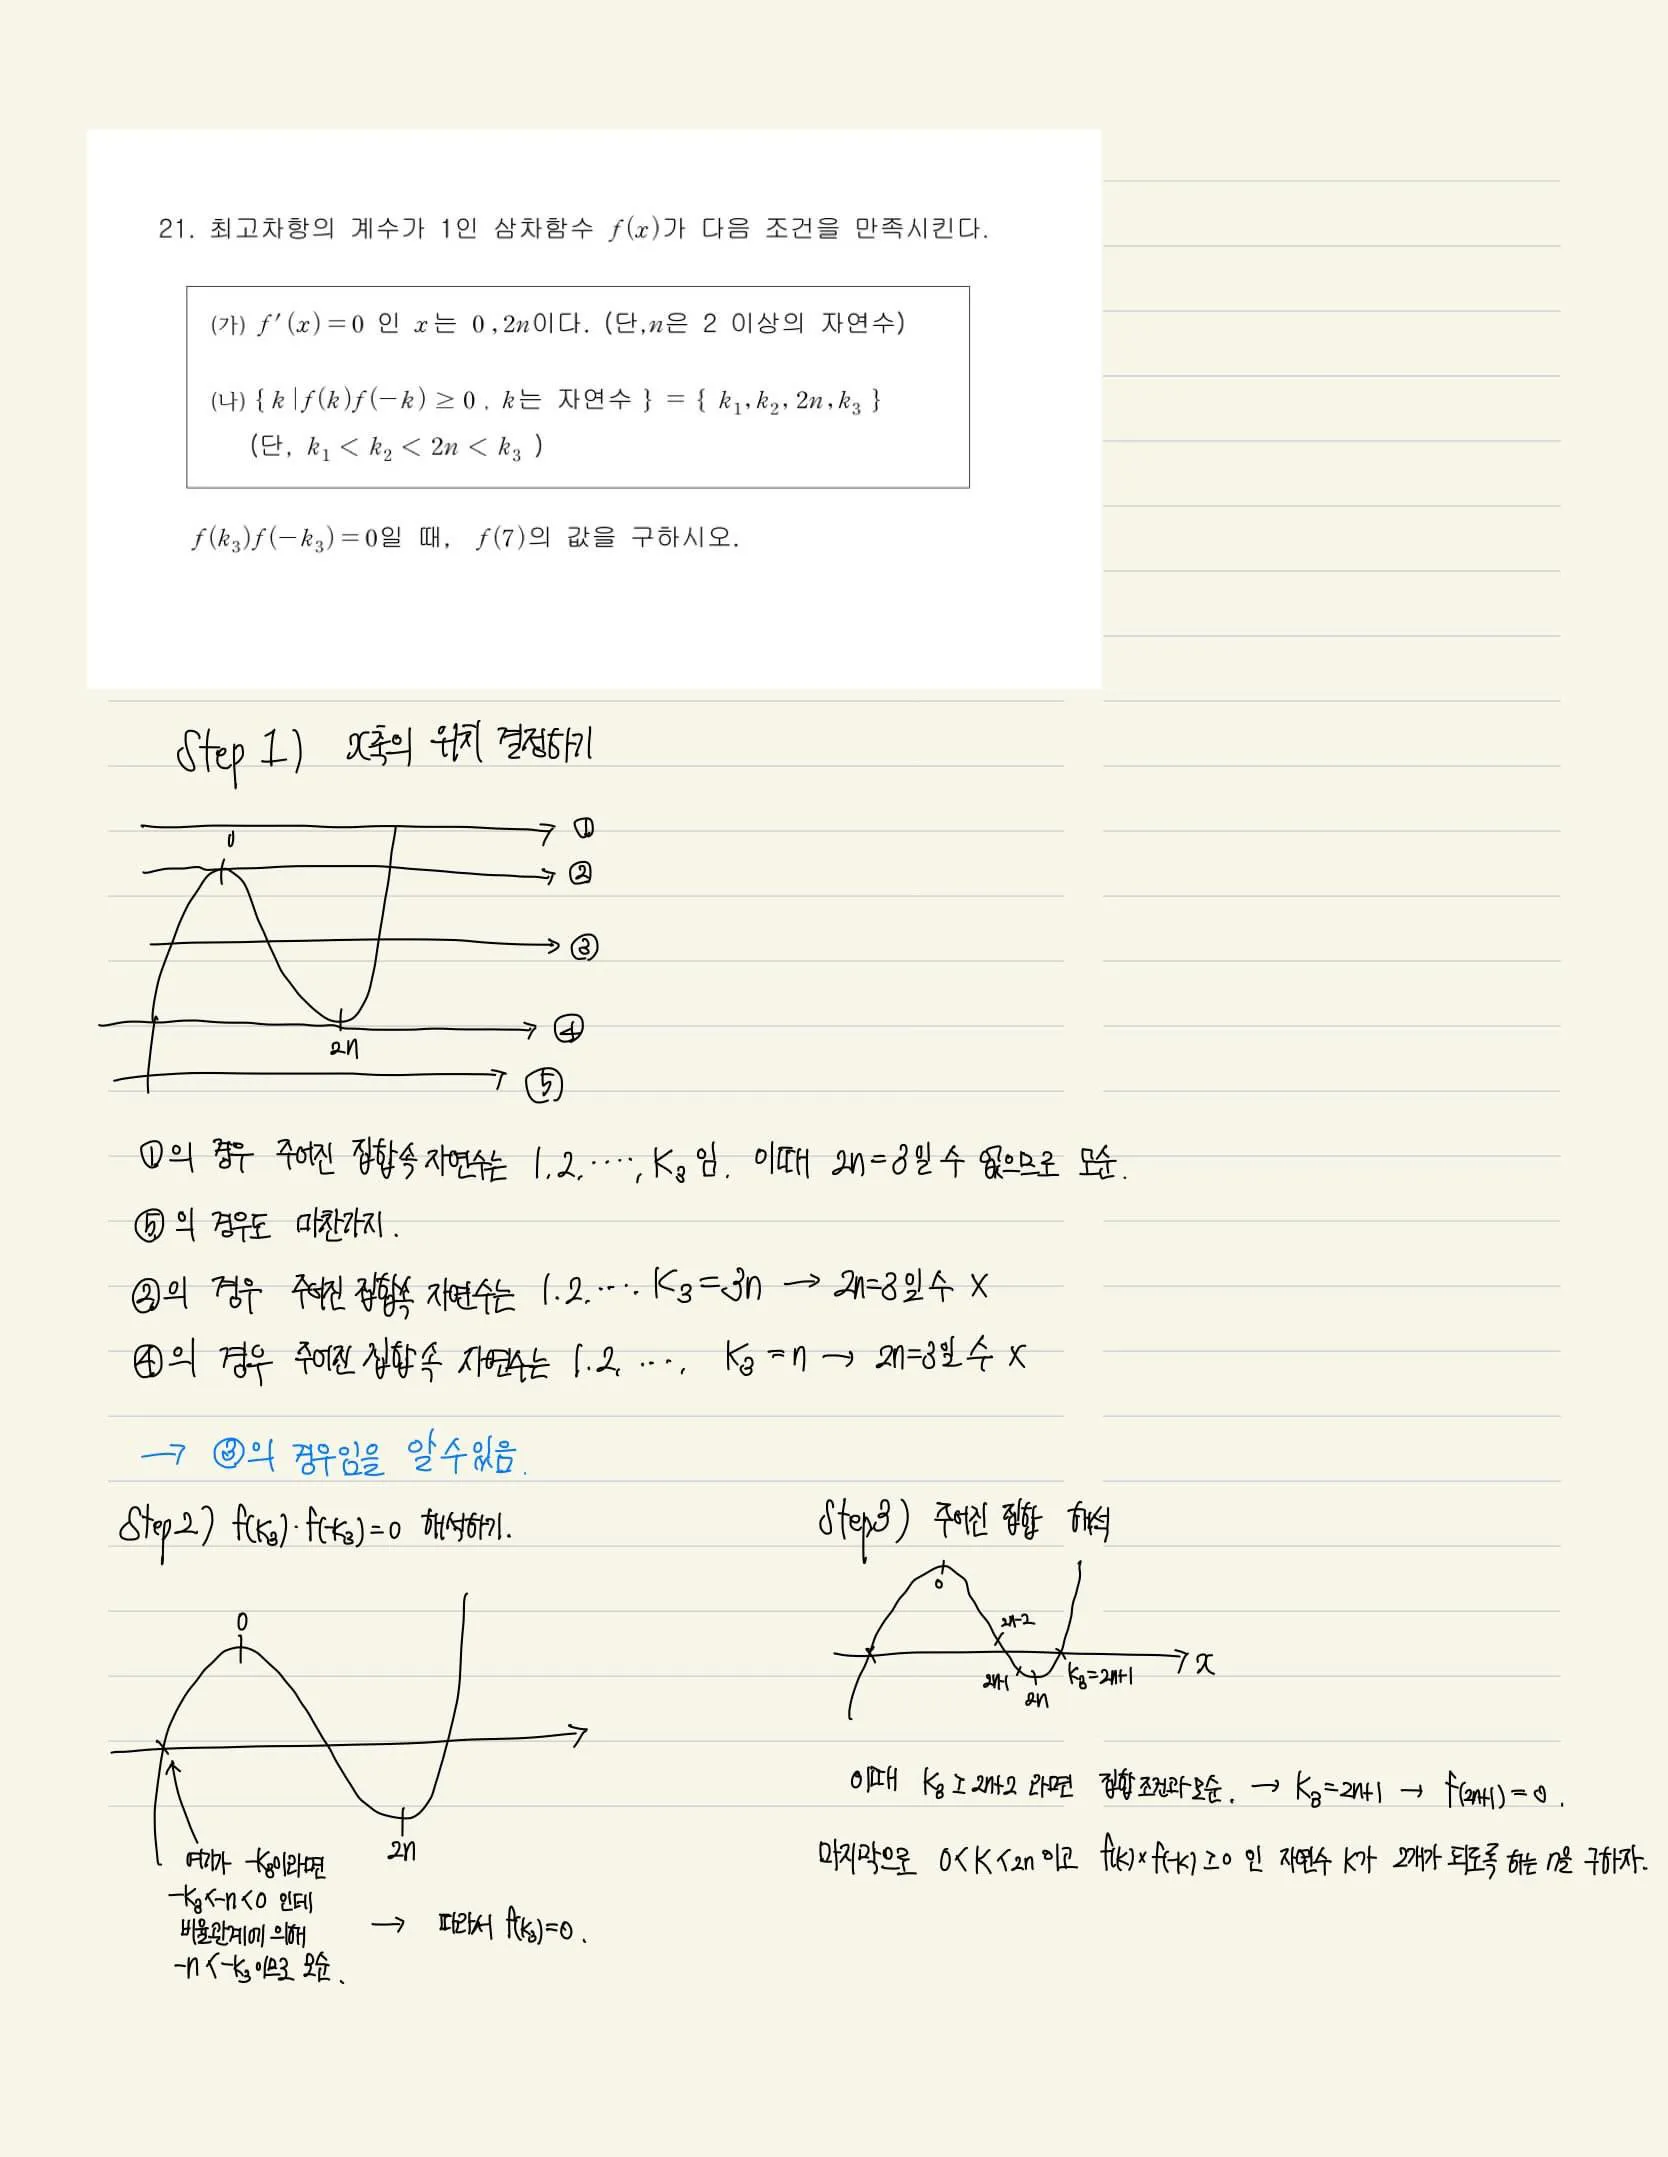 21. 최고차항의 계수가 1인 삼차함수 f(x)가 다음 조건을 만족시킨다.
(가) f′(x)=0 인 x는 0,2n이다. (단,n은 2 이상의 자연수)
(나) { k | f(k)f(−k) ≥ 0 , k는 자연수 } = { k₁, k₂, 2n, k₃ }
(단, k₁ < k₂ < 2n < k₃ )
f(k₃)f(−k₃)=0일 때, f(7)의 값을 구하시오.
Step 1) x축의 위치 결정하기
0
①
②
③
④
2n
⑤
①의 경우 주어진 집합속 자연수는 1, 2, ‥‥, K₃임. 이때 2n=3일 수 없으므로 모순.
⑤의 경우도 마찬가지.
②의 경우 주어진 집합속 자연수는 1. 2. ‥‥. K₃=3n → 2n=3일 수 X
④의 경우 주어진 집합 속 자연수는 1. 2, ‥‥, K₃=n → 2n=3일 수 X
→ ③의 경우임을 알 수 있음.
Step2) f(K₃)·f(-K₃)=0 해석하기.
0
2n
여기가 -K₃이라면
-K₃<-n<0 인데
비율관계에 의해
-n<-K₃이므로 모순.
→ 따라서 f(K₃)=0.
Step3) 주어진 집합 해석
0
2n-2
x
2n-1
2n
K₃=2n+1
이때 K₃≥2n+2 라면 집합조건과 모순. → K₃=2n+1 → f(2n+1)=0.
마지막으로 0<K<2n 이고 f(K)×f(-K)≥0 인 자연수 K가 2개가 되도록 하는 n을 구하자.